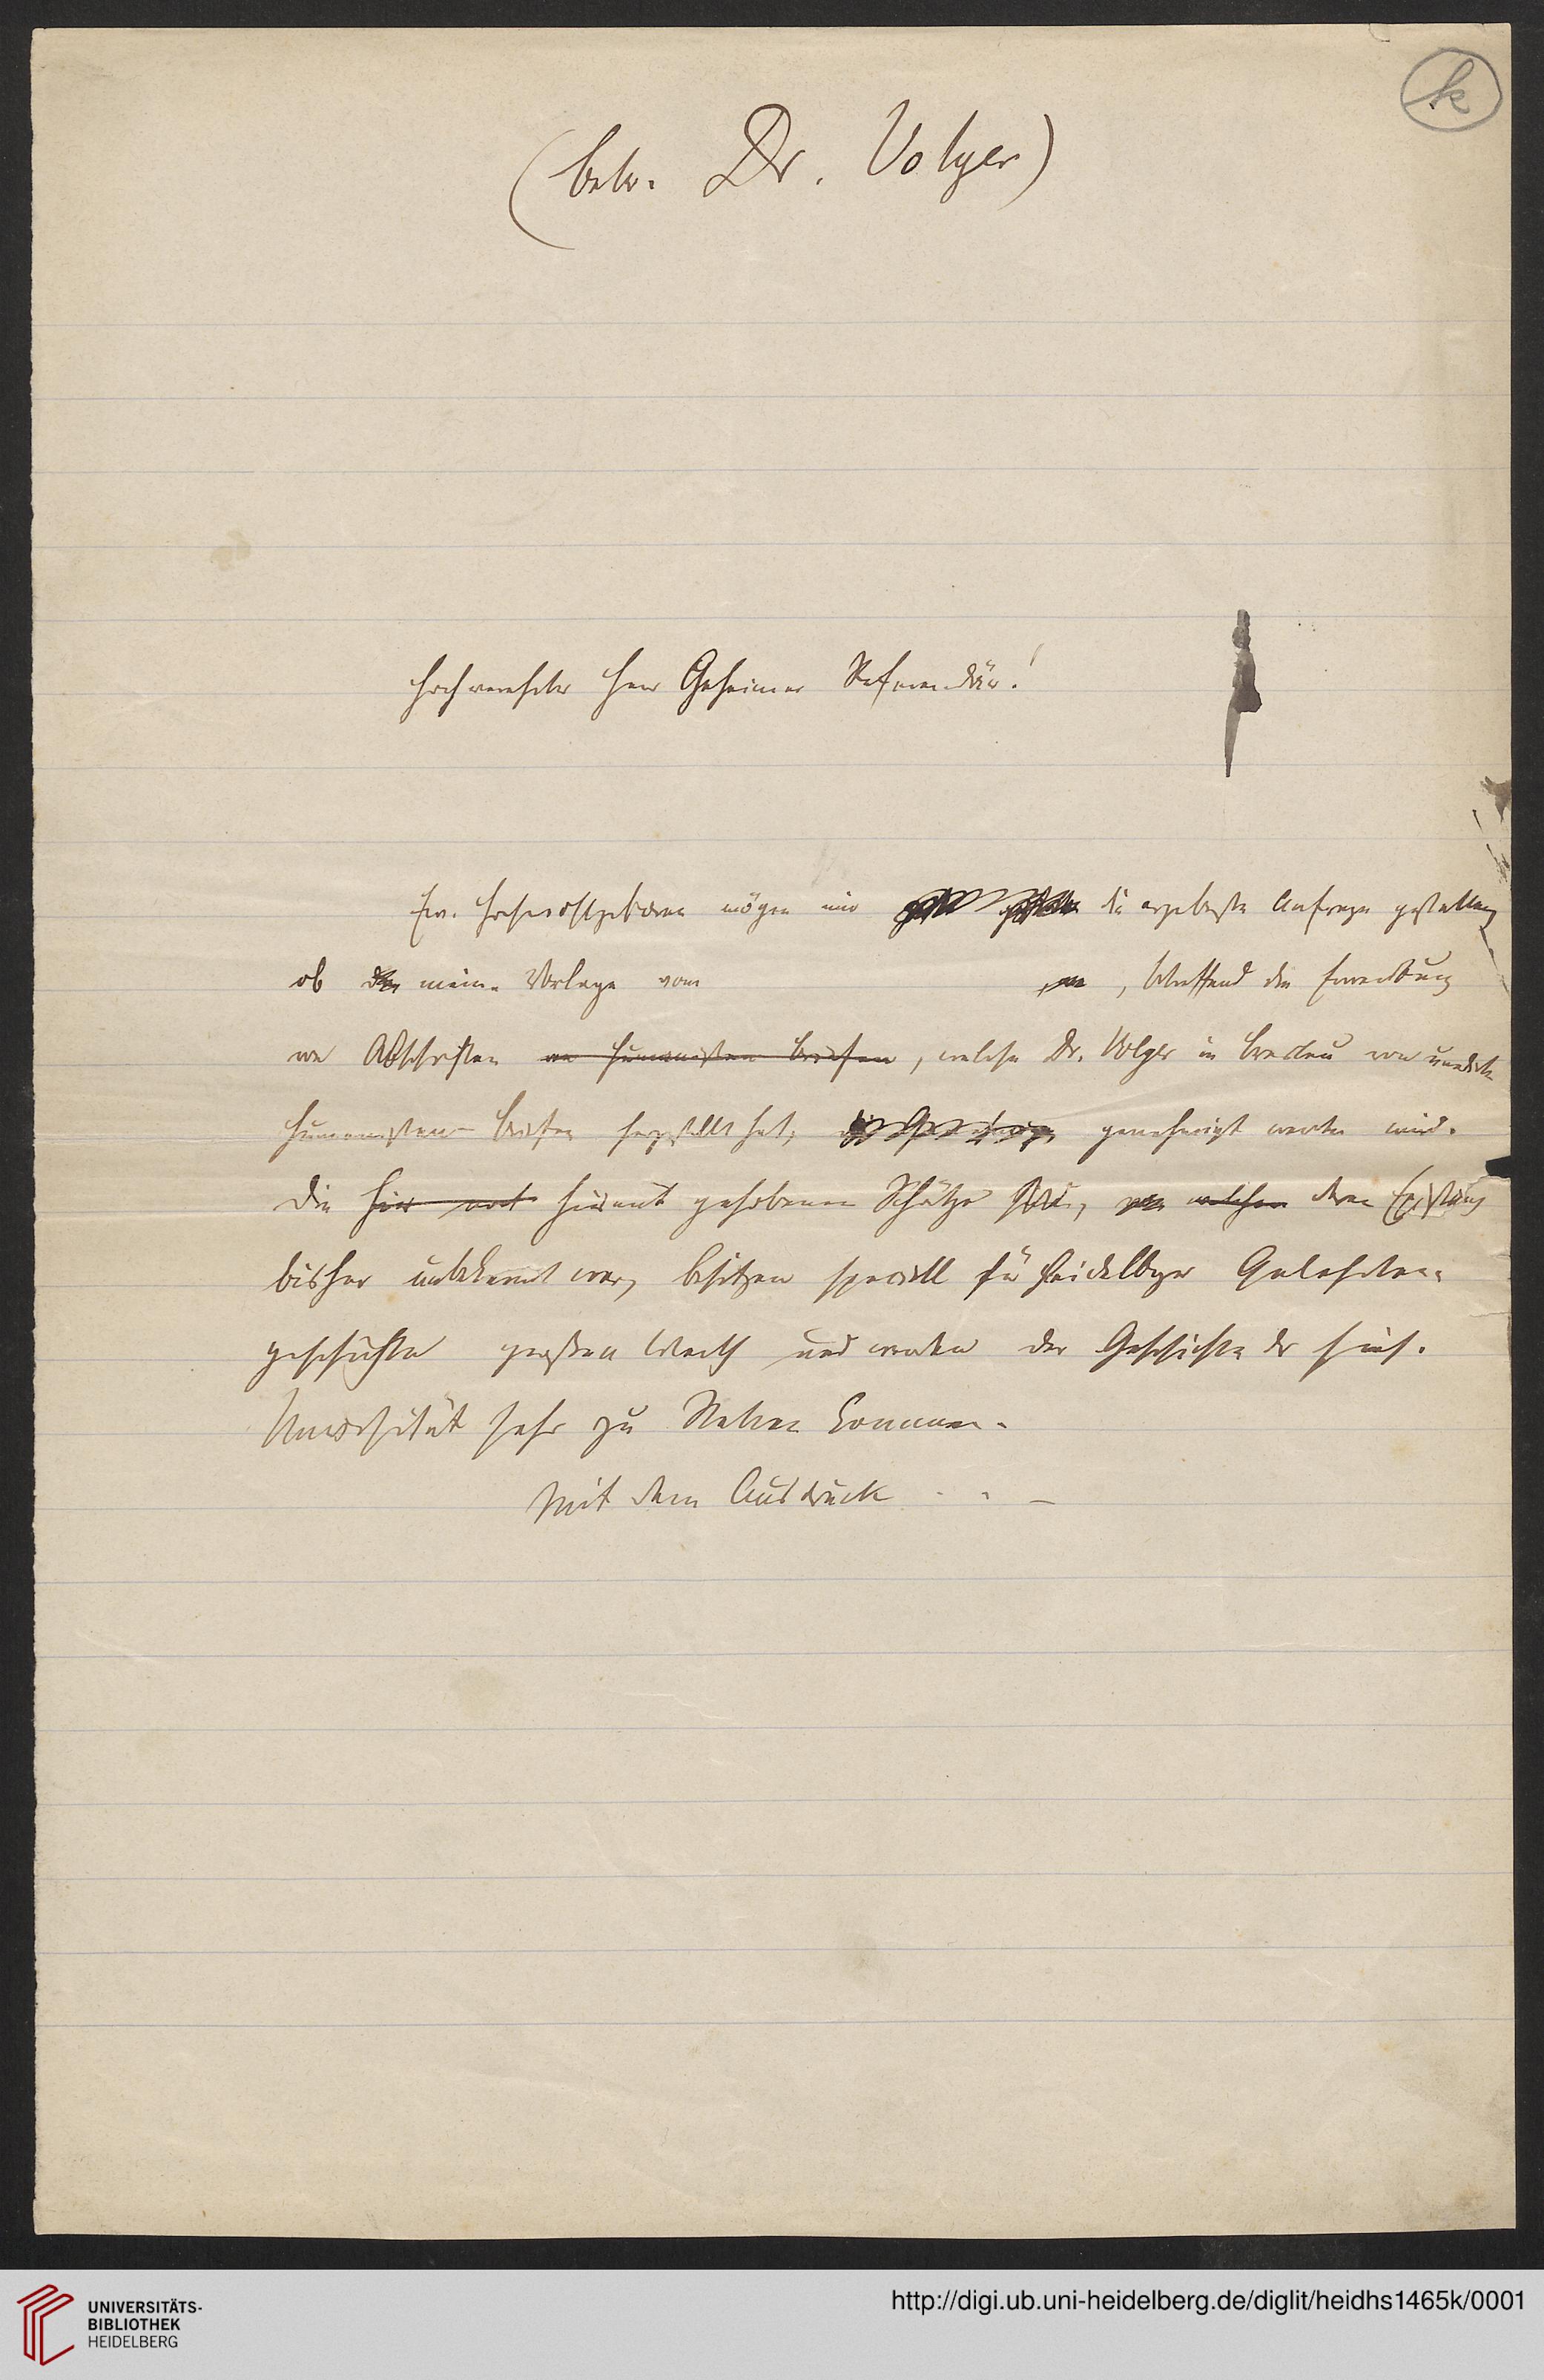 k
(betr. Dr. Volger)
Hochverehrter Herr Geheimer Referendär!
Ew. Hochwohlgeboren mögen mir die ergebenste Anfrage gestatten,
ob meine Vorlage vom , betreffend die Erwerbung
von Abschriften von Humanisten Briefen, welche Dr. Volger in Breslau von unedirten
Humanisten-Briefen hergestellt hat, genehmigt werden wird.
Die hiermit gehobenen Schätze, von welchen deren Existenz
bisher unbekannt war, besitzen speciell für Heidelberger Gelehrten-
geschichte grossen Werth und werden der Geschichte der hies.
Universität sehr zu Statten kommen.
Mit dem Ausdruck . . –
UNIVERSITÄTS-
BIBLIOTHEK
HEIDELBERG
http://digi.ub.uni-heidelberg.de/diglit/heidhs1465k/0001